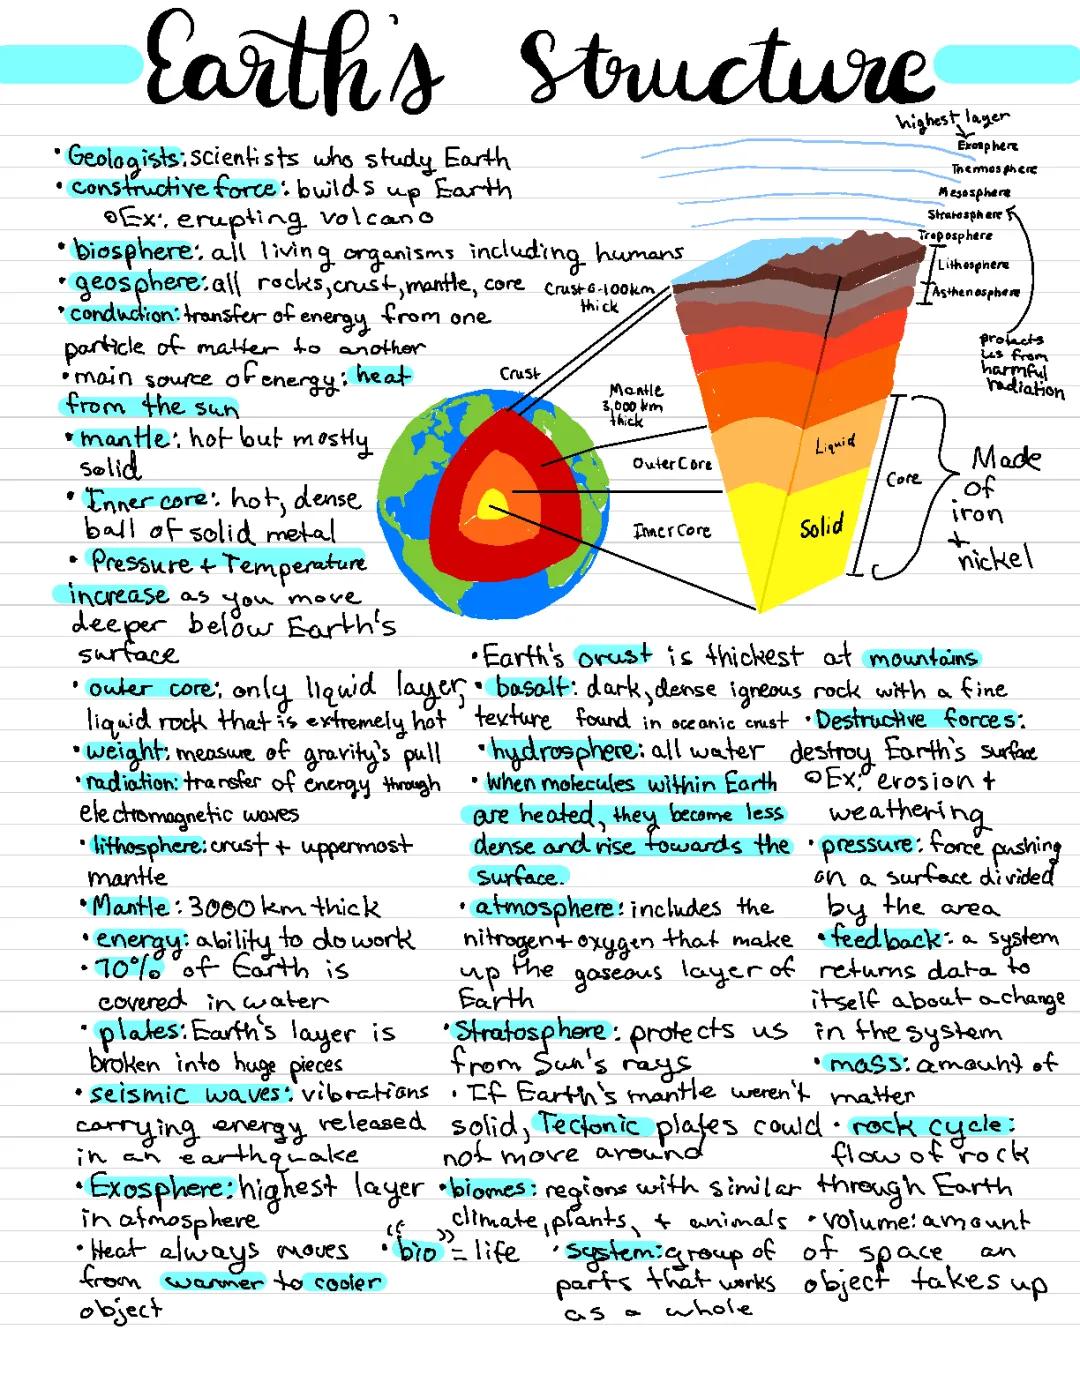 Earth's Structure
highest layer
Exosphere
Thermosphere
Mesosphere
Stratosphere
Troposphere
Lithosphere
Asthenosphere
protects
us from
harmful
radiation
• Geologists: scientists who study Earth
• constructive force: builds up Earth
o Ex: erupting volcano
• biosphere: all living organisms including humans
• geosphere: all rocks, crust, mantle, core
• conduction: transfer of energy from one
particle of matter to another
• main source of energy: heat
from the sun
• mantle: hot but mostly
solid
• Inner core: hot, dense
ball of solid metal
• Pressure + Temperature
increase as you move
deeper below Earth's
surface
Crust 6-100km
thick
Crust
Mantle
3,000 km
thick
Outer Core
Inner Core
Liquid
Solid
Core
Made
of
iron
+
nickel
• outer core: only liquid layer,
liquid rock that is extremely hot
• weight: measure of gravity's pull
• radiation: transfer of energy through
electromagnetic waves
• lithosphere: crust + uppermost
mantle
• Mantle: 3000 km thick
• energy: ability to do work
• 70% of Earth is
covered in water
• plates: Earth's layer is
broken into huge pieces
• seismic waves: vibrations
carrying energy released
in an earthquake
• Exosphere: highest layer
in atmosphere
• Heat always moves
from warmer to cooler
object
• Earth's crust is thickest at mountains
• basalt: dark, dense igneous rock with a fine
texture found in oceanic crust
• hydrosphere: all water
• When molecules within Earth
are heated, they become less
dense and rise towards the
surface.
• atmosphere: includes the
nitrogen + oxygen that make
up the gaseous layer of
Earth
• Stratosphere: protects us
from Sun's rays
• If Earth's mantle weren't
solid, Tectonic plates could
not move around
• biomes: regions with similar
climate, plants, + animals
• "bio" = life
• system: group of
parts that works
as a whole
• Destructive forces:
destroy Earth's surface
o Ex: erosion +
weathering
• pressure: force pushing
on a surface divided
by the area
• feedback: a system
returns data to
itself about a change
in the system
• mass: amount of
matter
• rock cycle:
flow of rock
through Earth
• volume: amount
of space an
object takes up